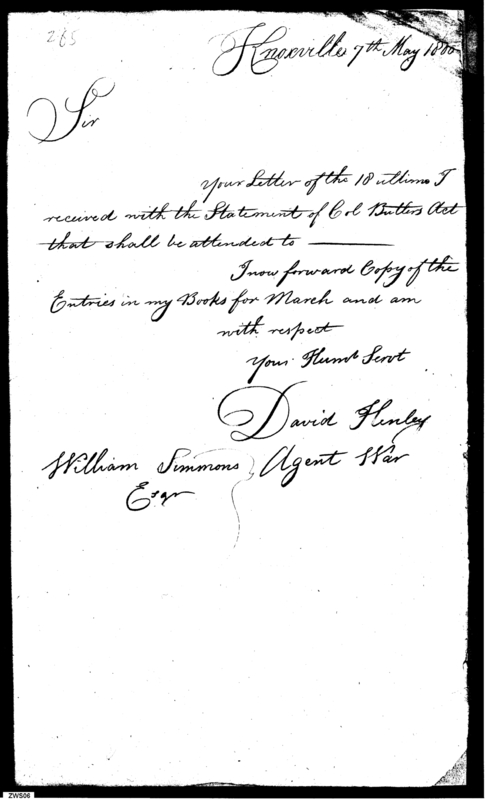 265
Knoxville 7th May 1800
Sir
your Letter of the 18 ultimo I
received with the Statement of Col Butlers Act
that shall be attended to
I now forward Copy of the
Entries in my Books for March and am
with respect
your Humb Servt
David Henley
William Simmons Agent War
Esqr
ZWS06